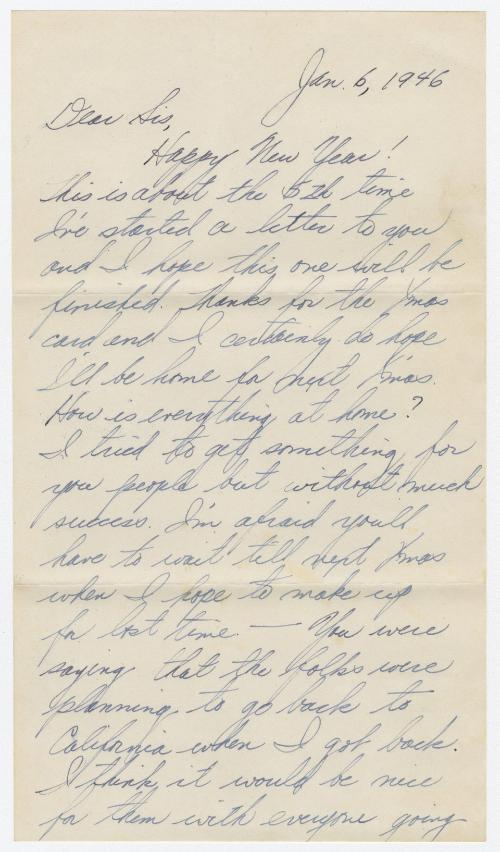 Jan. 6, 1946
Dear Sis,
Happy New Year!
This is about the 5th time
I've started a letter to you
and I hope this one will be
finished. Thanks for the Xmas
card and I certainly do hope
I'll be home for next X'mas.
How is everything at home?
I tried to get something for
you people but without much
success. I'm afraid you'll
have to wait till next Xmas
when I hope to make up
for lost time. — You were
saying that the folks were
planning to go back to
California when I got back.
I think it would be nice
for them with everyone going